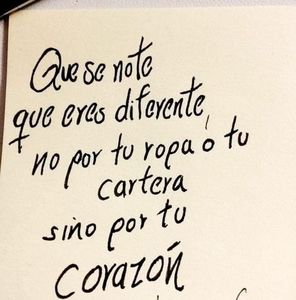 Que se note
que eres diferente,
no por tu ropa ó tu
cartera
sino por tu
corazón